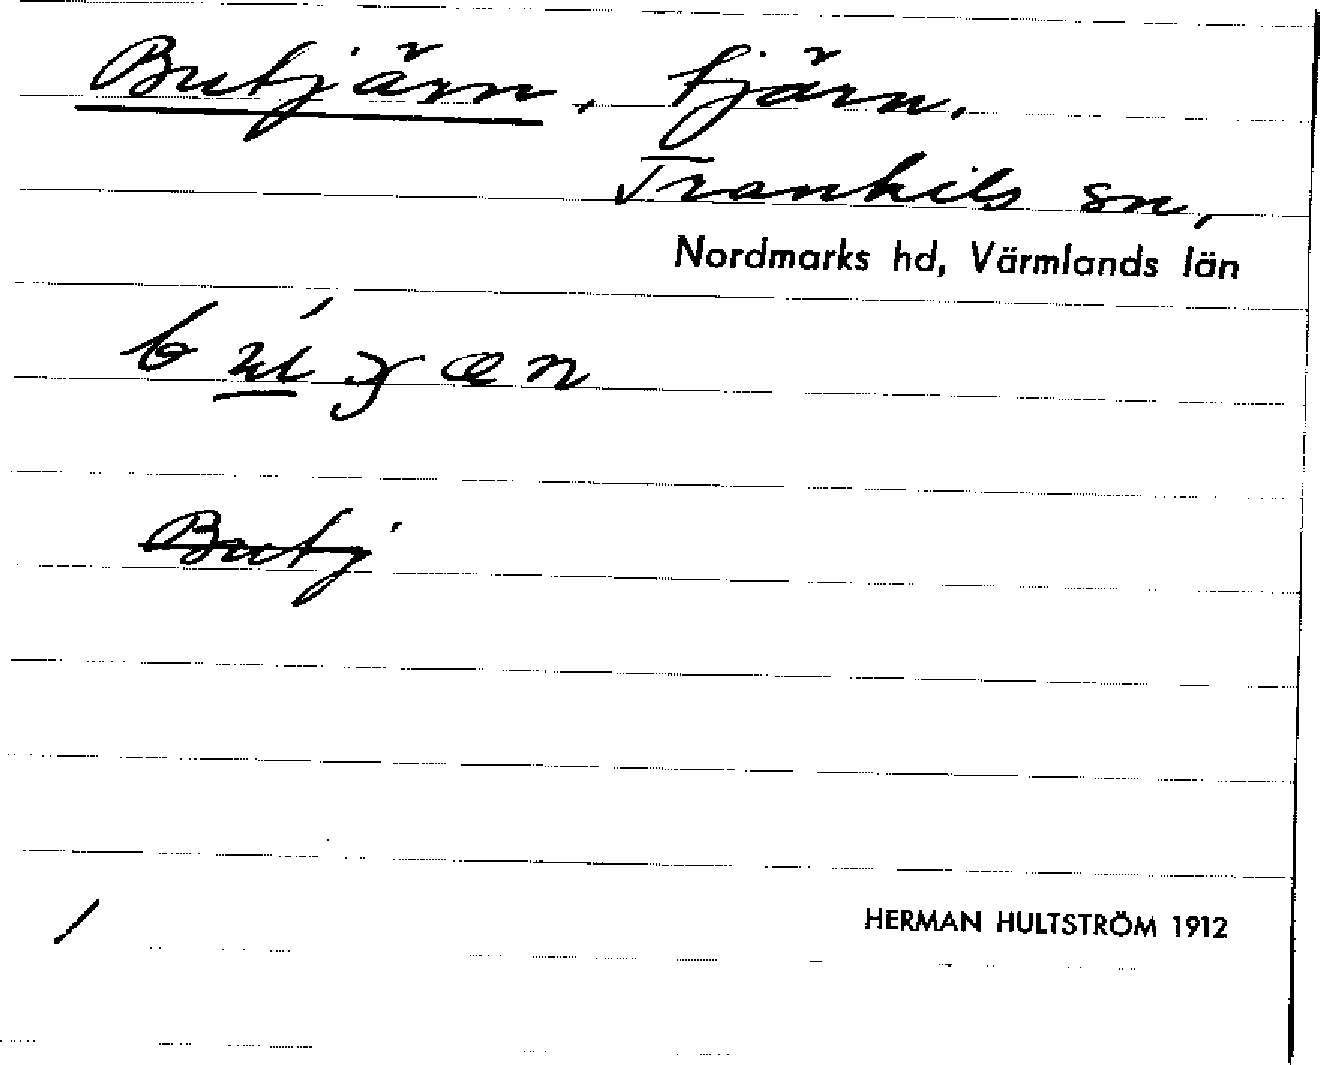 Butjärn, tjärn,
Trankils sn,
Nordmarks hd, Värmlands län
Butj
HERMAN HULTSTRÖM 1912